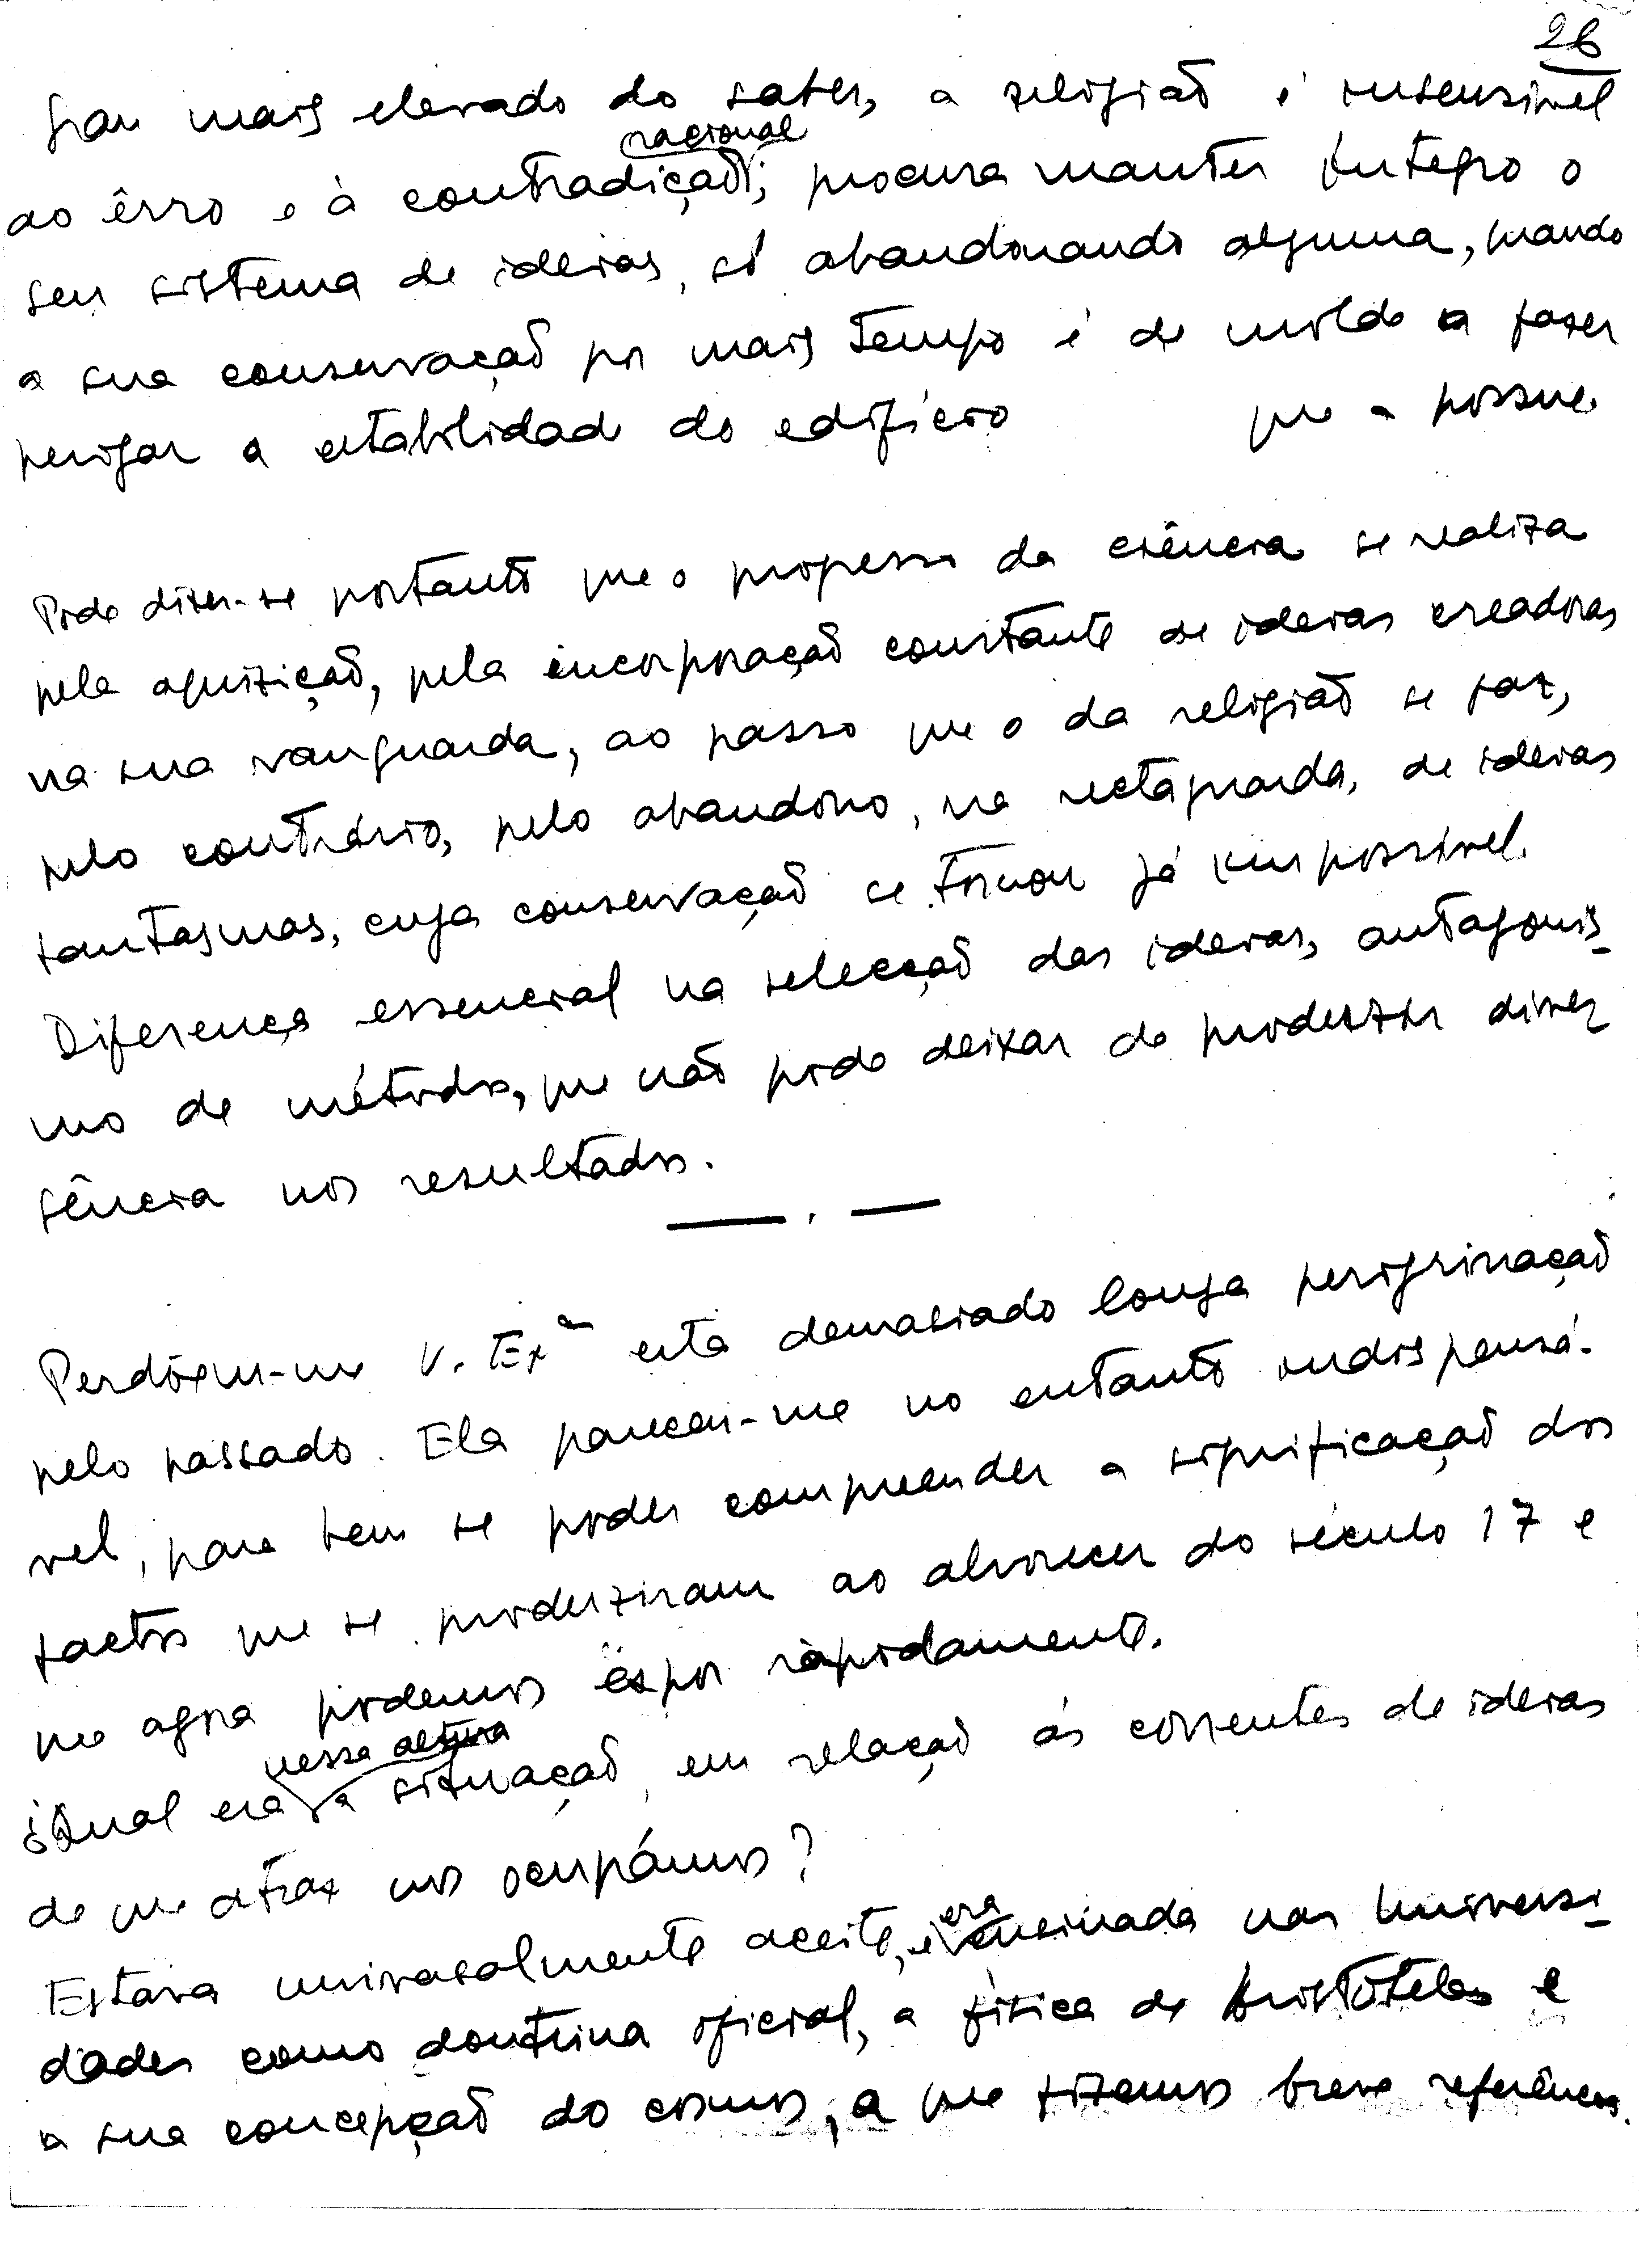 26
grau mais elevado do saber, a religião é insensível
racional
ao êrro e à contradição; procura manter íntegro o
seu sistema de ideias, só abandonando alguma, quando
a sua conservação por mais tempo é de molde a fazer
perigar a estabilidade do edifício que a possue
Pode dizer-se portanto que o progresso da ciência se realiza
pela aquizição, pela incorporação constante de ideias creadoras
na sua vanguarda, ao passo que o da religião se faz,
pelo contrário, pelo abandono, na rectaguarda, de ideias
fantasmas, cuja conservação se tornou já impossível.
Diferença essencial na selecção das ideias, antagonis-
mo de métodos, que não pode deixar de produzir diver
sência nos resultados.
Perdõem-me V. Exas esta demasiado longa perigrinação
pelo passado. Ela pareceu-me no entanto indispensá-
vel, para bem se poder compreender a significação dos
factos que se produziram ao alvorecer do século 17 e
que agora podemos expor ràpidamente.
nessa altura
¿Qual era a situação, em relação ás correntes de ideias
de que atraz nos ocupámos?
era
Estava universalmente aceite, e ensinada nas Universi-
dades como doutrina oficial, a física de Aristóteles e
a sua concepção do cosmos, a que fizemos breve referência.